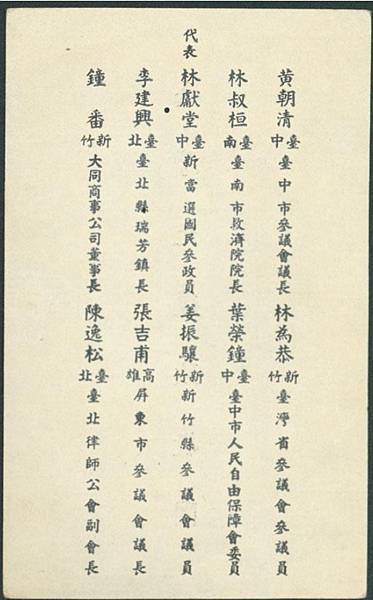 代表
黄朝清 臺中 臺中市參議會議長 林為恭 新竹 臺灣省參議會參議員
林叔桓 臺南 臺南市救濟院院長 葉榮鐘 臺中 臺中市人民自由保障會委員
林獻堂 臺中 新當選國民參政員 姜振驤 新竹 新竹縣參議會議員
李建興 臺北 臺北縣瑞芳鎮長 張吉甫 高雄 屏東市參議會議長
鐘番 新竹 大同商事公司董事長 陳逸松 臺北 臺北律師公會副會長